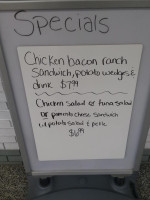 Specials
Chicken bacon ranch
Sandwich, potato wedges &
drink $7.99
Chicken Salad or tuna salad
or pimento cheese Sandwich
w/ potato salad & pickle
$6.99